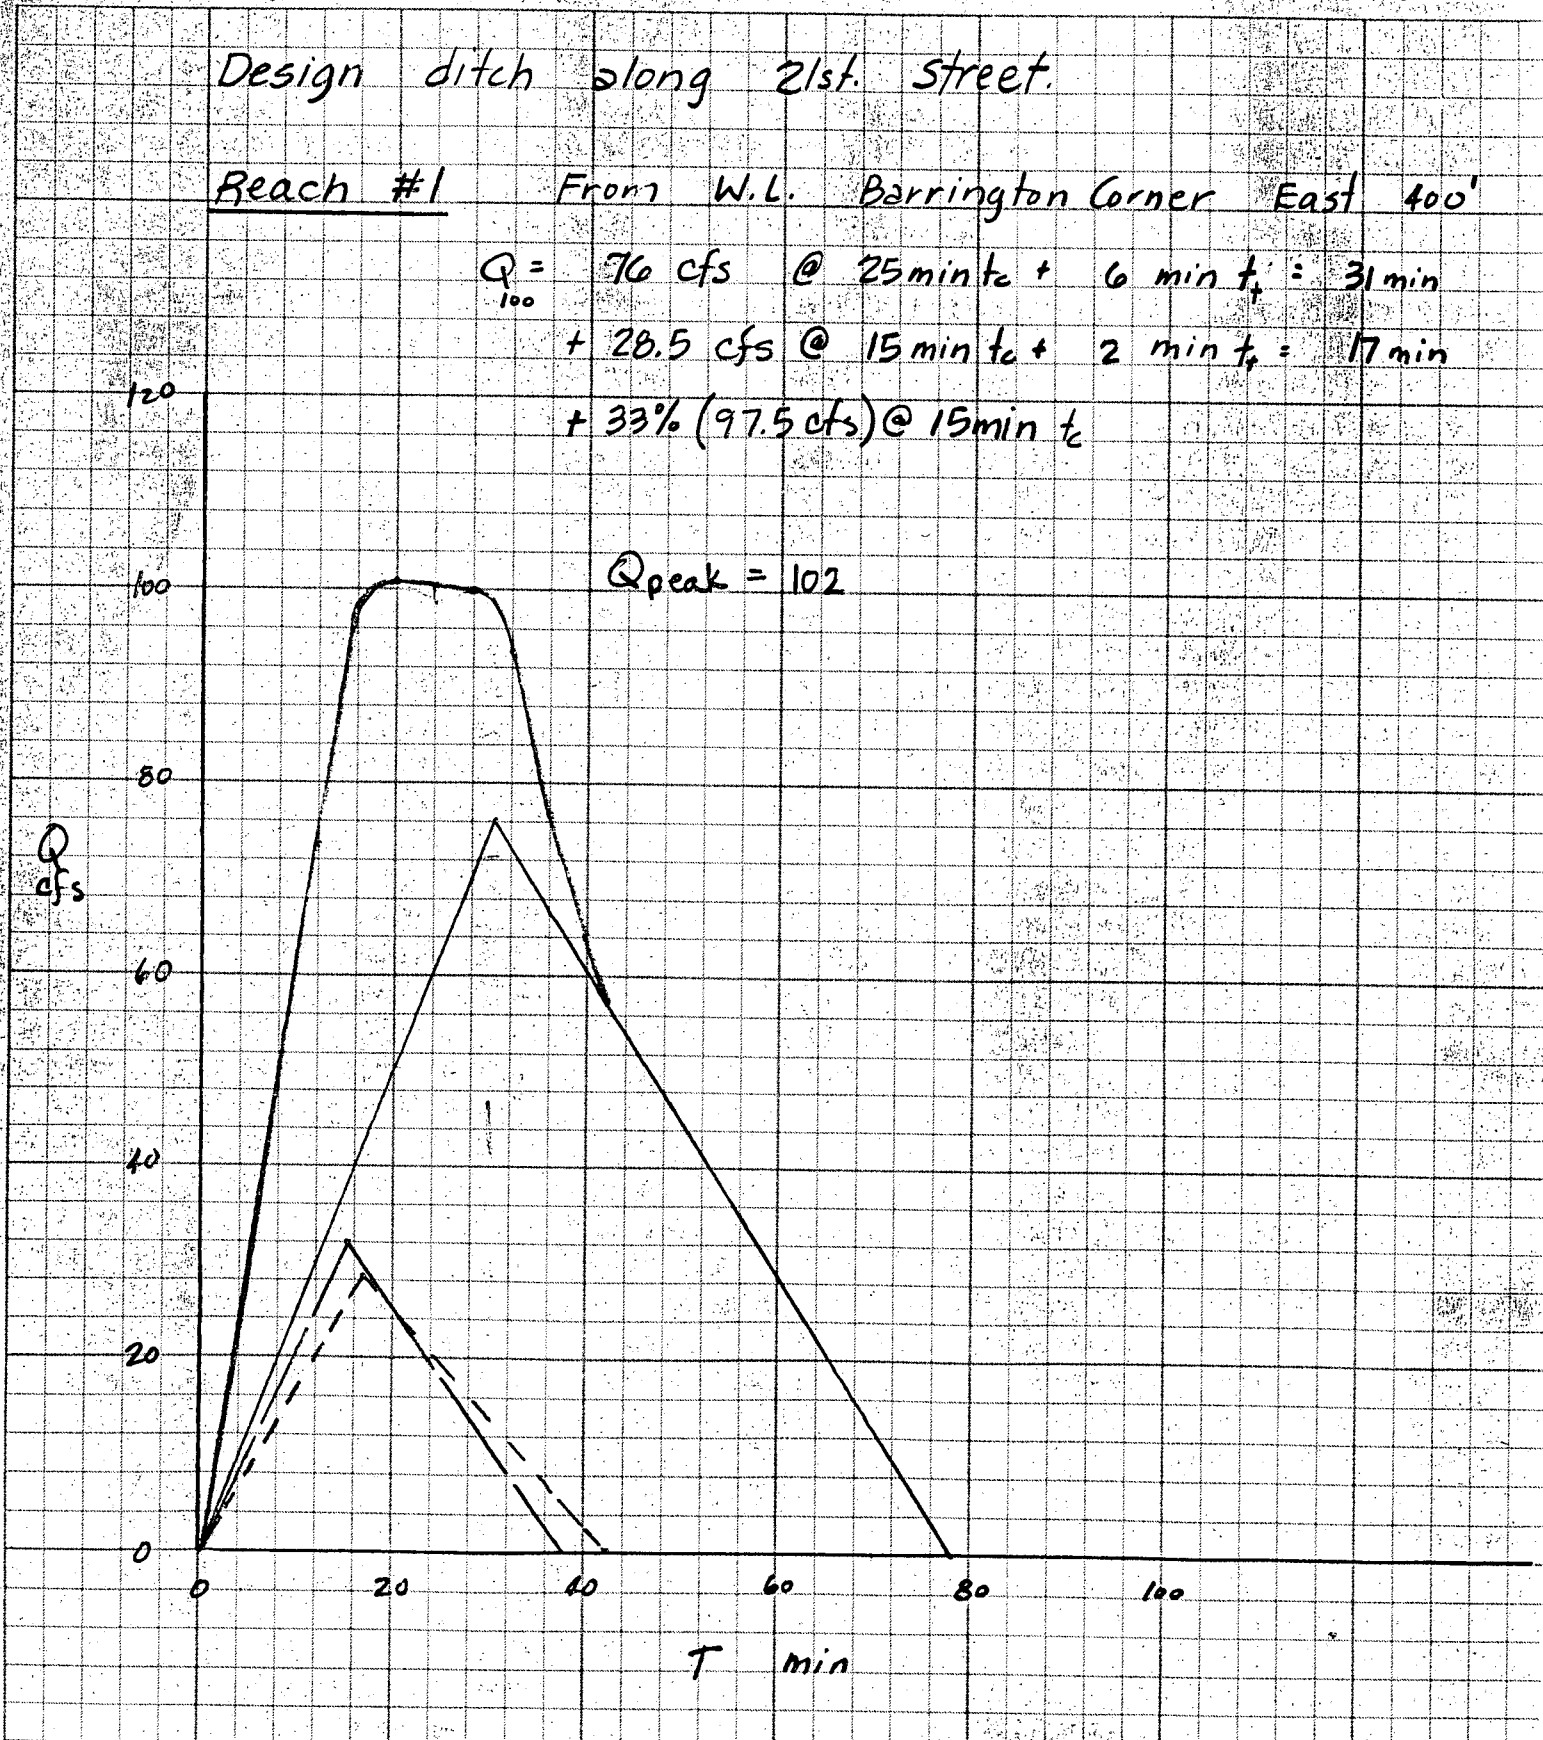 Design ditch along 21st. Street.
Reach #1 From W.L. Barrington Corner East 400'
Q100 = 76 cfs @ 25 min tc + 6 min tt = 31 min
+ 28.5 cfs @ 15 min tc + 2 min tt = 17 min
+ 33% (97.5 cfs) @ 15 min tc
120
Qpeak = 102
100
80
Q
cfs
60
40
20
0
0 20 40 60 80 100
T min